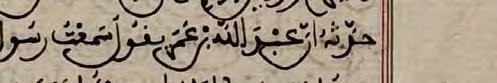 حدثه ان عبد الله بن عمر يقول سمعت رسول